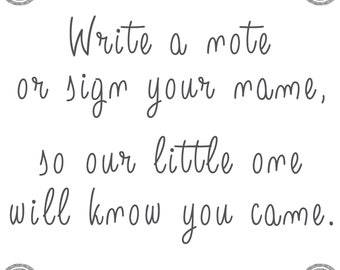 Write a note
or sign your name,
so our little one
will know you came.